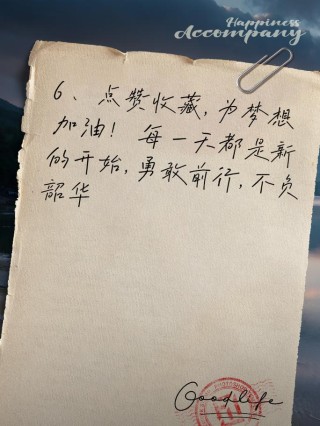 Happiness
Accompany
6、点赞收藏,为梦想
加油! 每一天都是新
的开始,勇敢前行,不负
韶华
Goodlife